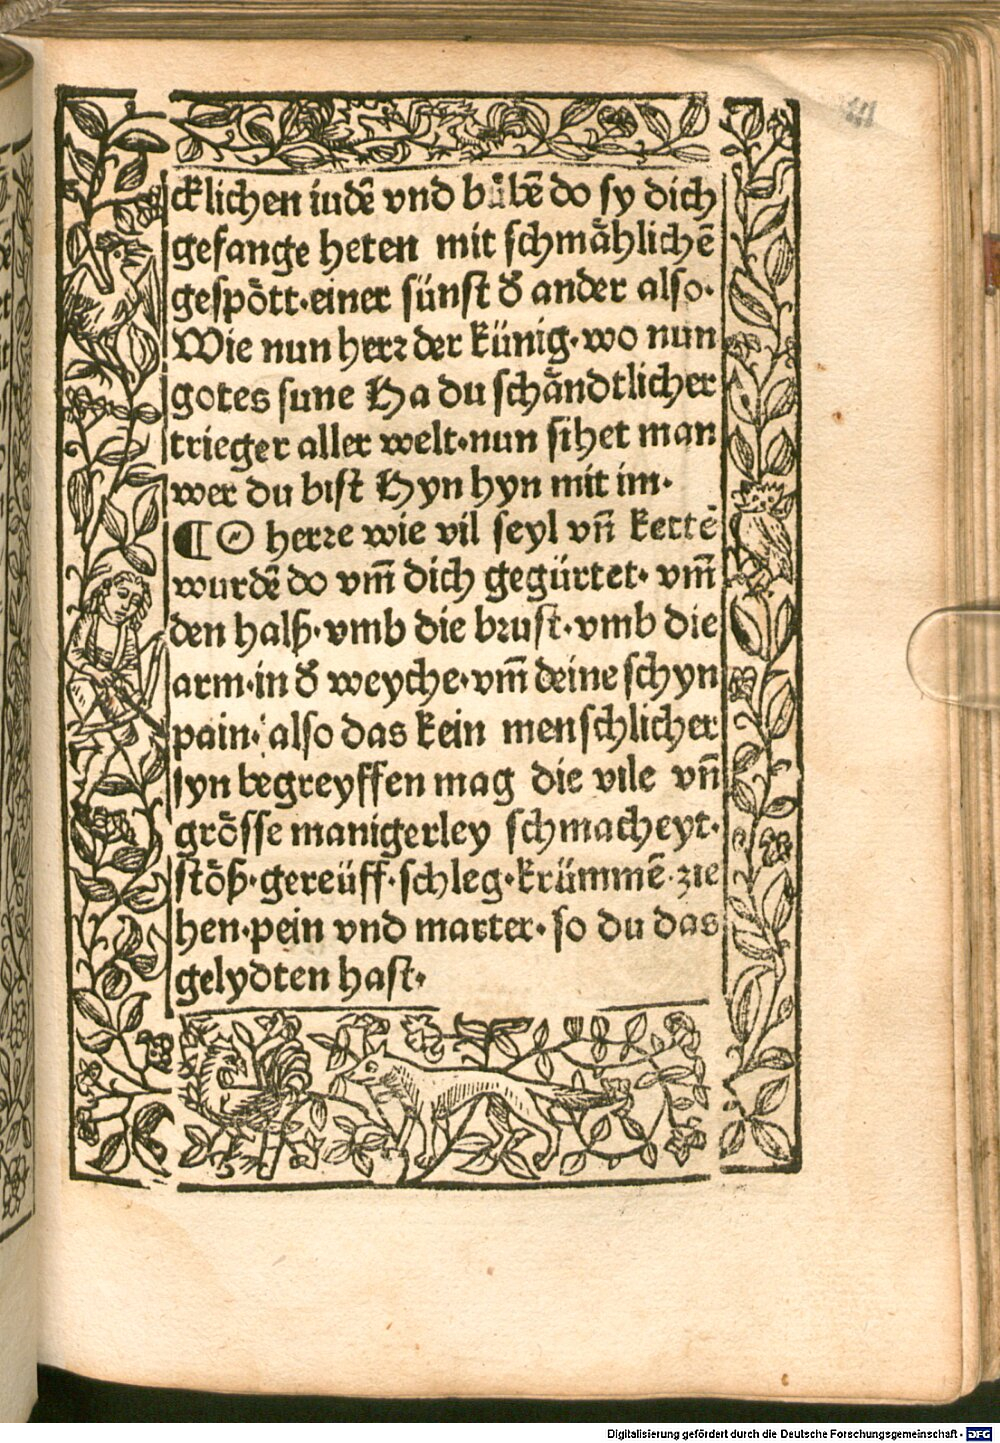 cklichen iudē vnd bůbē do sy dich
gefange heten mit schmaͤhlichē
gespoͤtt·einer sünst d᷑ ander also·
Wie nun herꝛ der künig·wo nun
gotes sune Ha du schaͤndtlicher
trieger aller welt·nun sihet man
wer du bist Hyn hyn mit im·
¶ O herꝛe wie vil seyl vn̄ kettē
wurdē do vm̄ dich gegürtet· vm̄
den halß·vmb die bꝛust·vmb die
arm·in d᷑ weyche·vm̄ deine schyn
pain· also das kein menschlicher
syn begreyffen mag die vile vn̄
groͤsse manigerley schmacheyt·
stoͤß·gereüff·schleg·krümmē·zie
hen·pein vnd marter·so du das
gelydten hast·
Digitalisierung gefördert durch die Deutsche Forschungsgemeinschaft - DFG